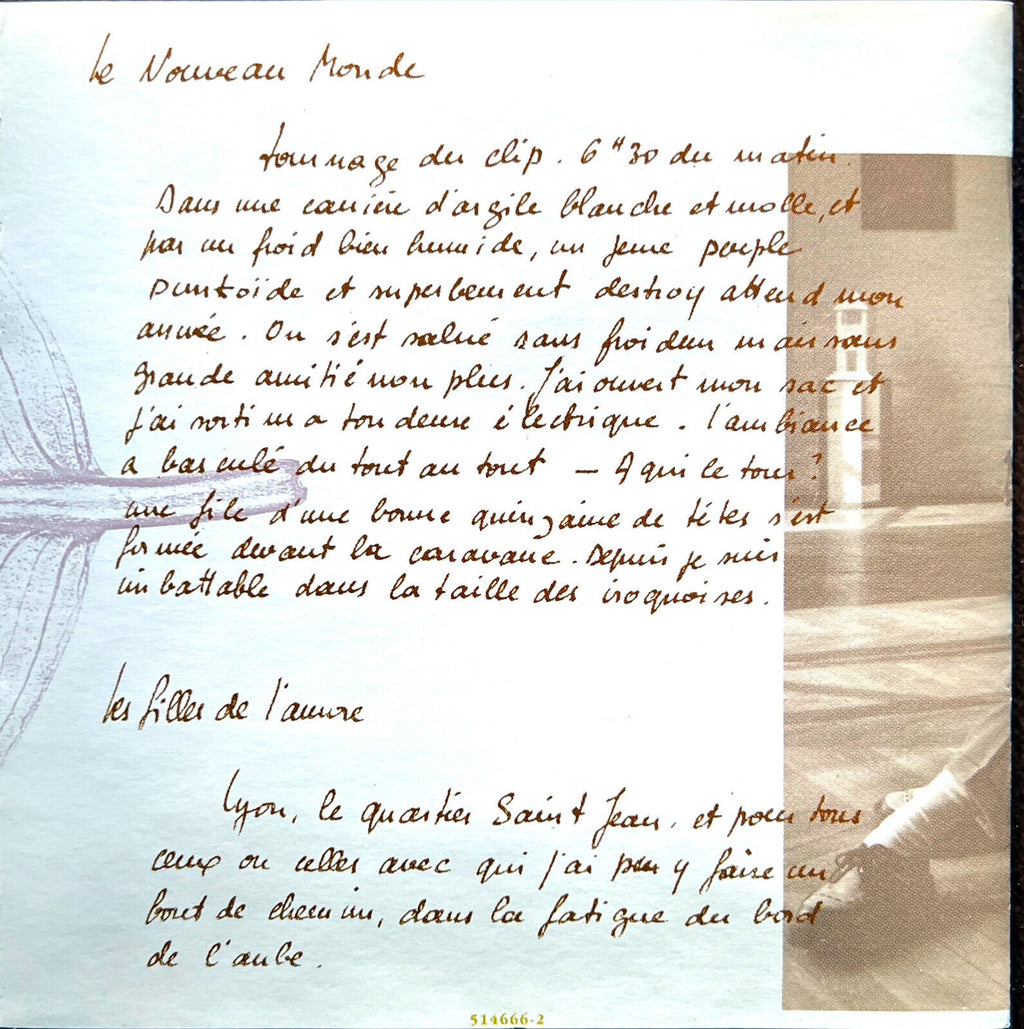 Le Nouveau Monde
Tournage du clip. 6H30 du matin.
Dans une carrière d'argile blanche et molle, et
par un froid bien humide, un jeune peuple
punkoïde et superbement destroy attend mon
arrivée. On s'est salué sans froideur mais sans
grande amitié non plus. J'ai ouvert mon sac et
j'ai sorti ma tondeuse électrique. L'ambiance
a basculé du tout au tout – A qui le tour ?
une file d'une bonne quinzaine de têtes s'est
formée devant la caravane. Depuis je suis
imbattable dans la taille des iroquoises.
Les filles de l'aurore
Lyon, le quartier Saint Jean, et pour tous
ceux ou celles avec qui j'ai pu y faire un
bout de chemin, dans la fatigue du bord
de l'aube.
514666-2